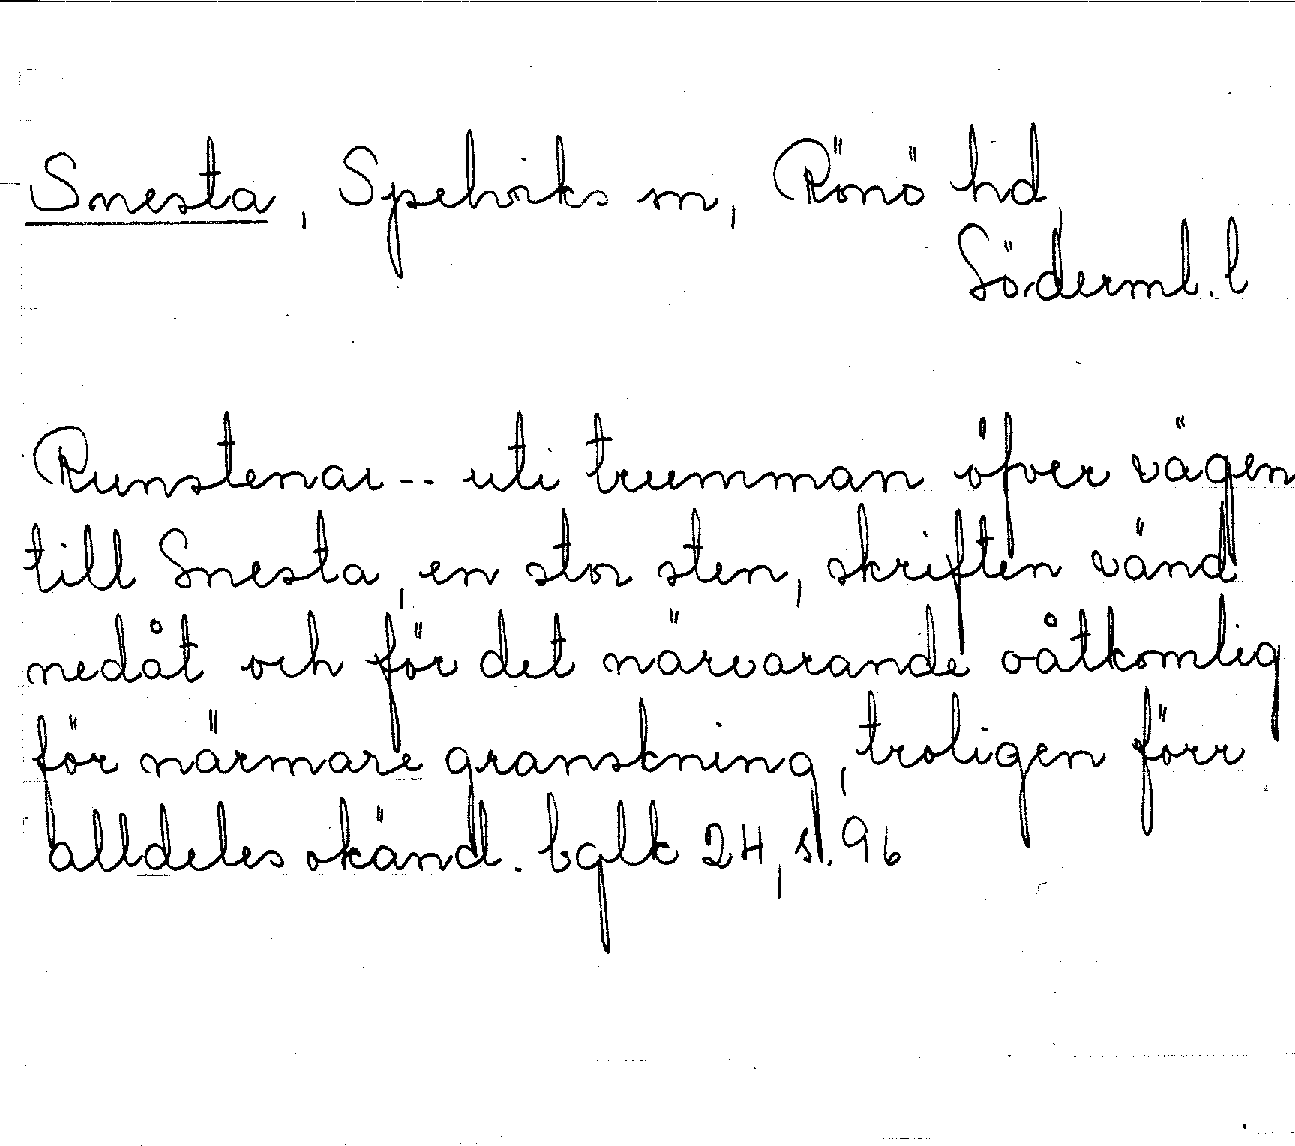 Snesta, Spelviks sn, Rönö hd,
Söderml. l
Runstenar -- uti trumman öfver vägen
till Snesta, en stor sten, skriften vänd
nedåt och för det närvarande oåtkomlig
för närmare granskning, troligen förr
alldeles okänd. bglk 24, s. 96